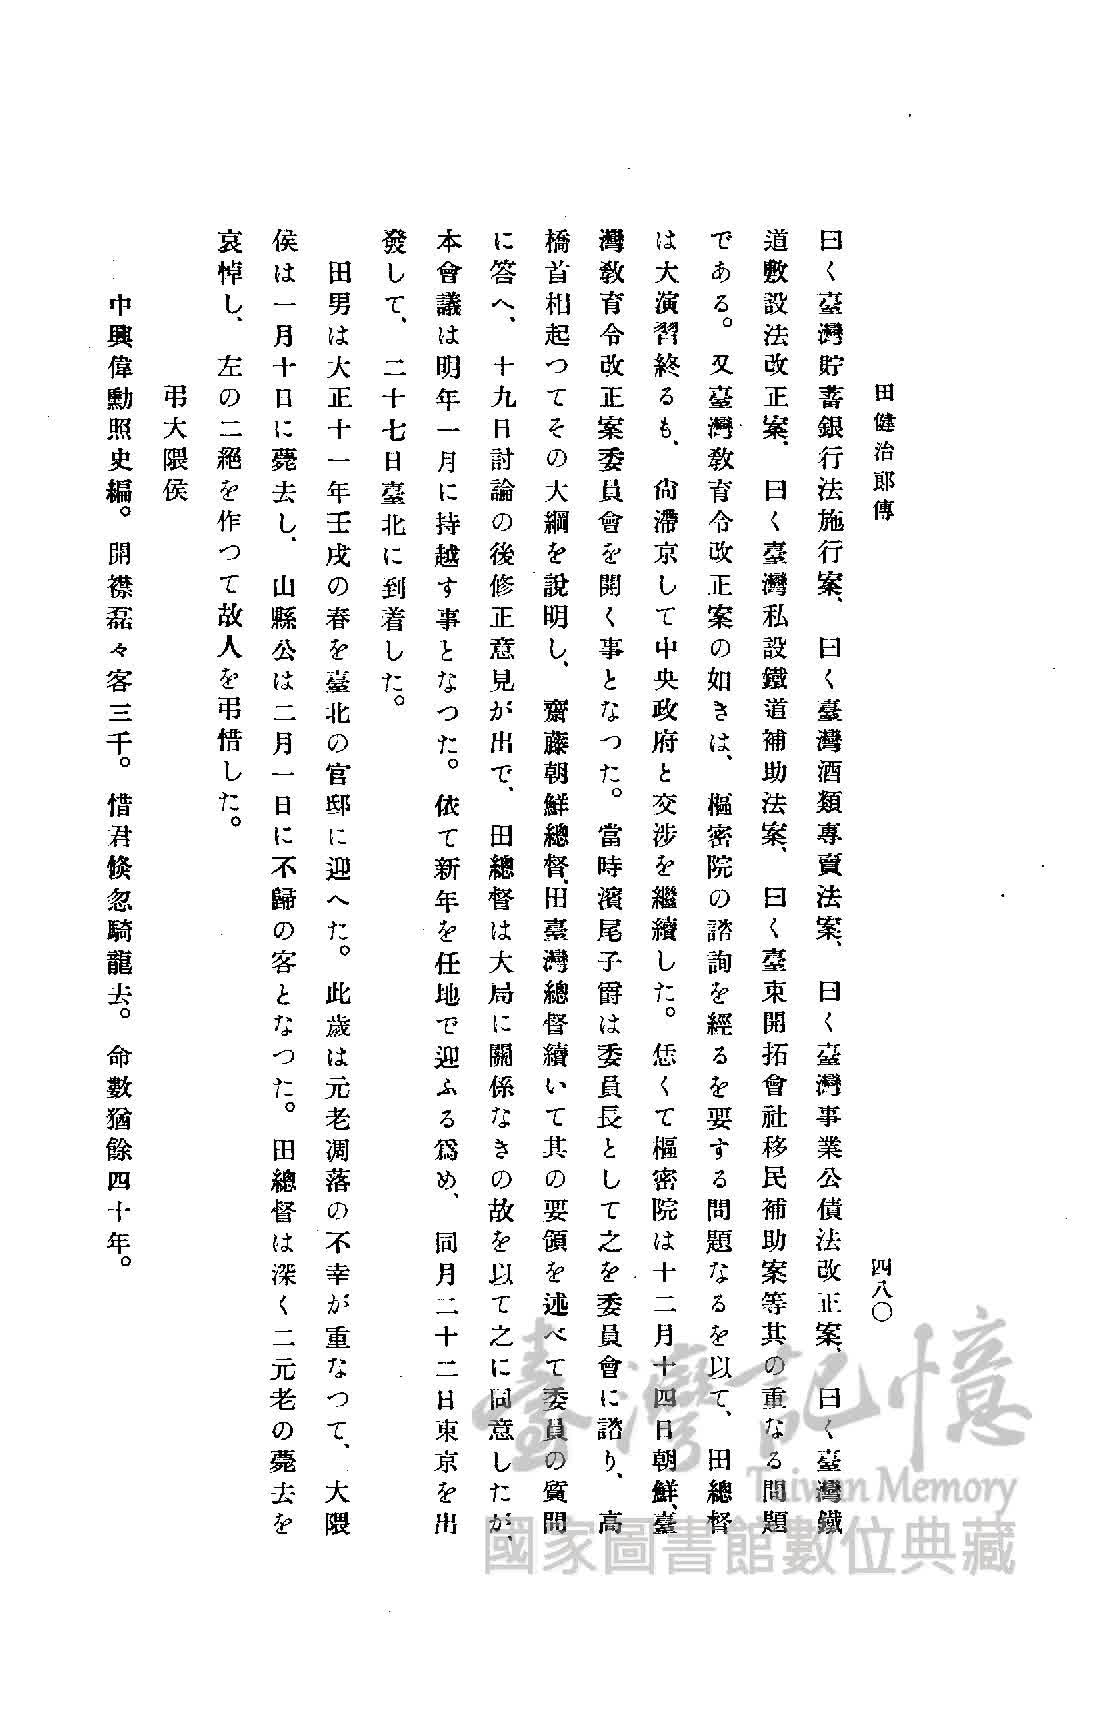 田健治郎傳
四八〇
曰く臺灣貯蓄銀行法施行案、曰く臺灣酒類專賣法案、曰く臺灣事業公債法改正案、曰く臺灣鐵
道敷設法改正案、曰く臺灣私設鐵道補助法案、曰く臺東開拓會社移民補助案等其の重なる問題
である。又臺灣敎育令改正案の如きは、樞密院の諮詢を經るを要する問題なるを以て、田總督
は大演習終るも、尙滯京して中央政府と交涉を繼續した。恁くて樞密院は十二月十四日朝鮮、臺
灣敎育令改正案委員會を開く事となつた。當時濱尾子爵は委員長として之を委員會に諮り、高
橋首相起つてその大綱を說明し、齋藤朝鮮總督、田臺灣總督續いて其の要領を述べて委員の質問
に答へ、十九日討論の後修正意見が出で、田總督は大局に關係なきの故を以て之に同意したが、
本會議は明年一月に持越す事となつた。依て新年を任地で迎ふる爲め、同月二十二日東京を出
發して、二十七日臺北に到着した。
田男は大正十一年壬戌の春を臺北の官邸に迎へた。此歲は元老凋落の不幸が重なつて、大隈
侯は一月十日に薨去し、山縣公は二月一日に不歸の客となつた。田總督は深く二元老の薨去を
哀悼し、左の二絕を作つて故人を弔惜した。
弔大隈侯
中興偉勳照史編。開襟磊々客三千。惜君倏忽騎龍去。命數猶餘四十年。
臺灣記憶
Taiwan Memory
國家圖書館數位典藏